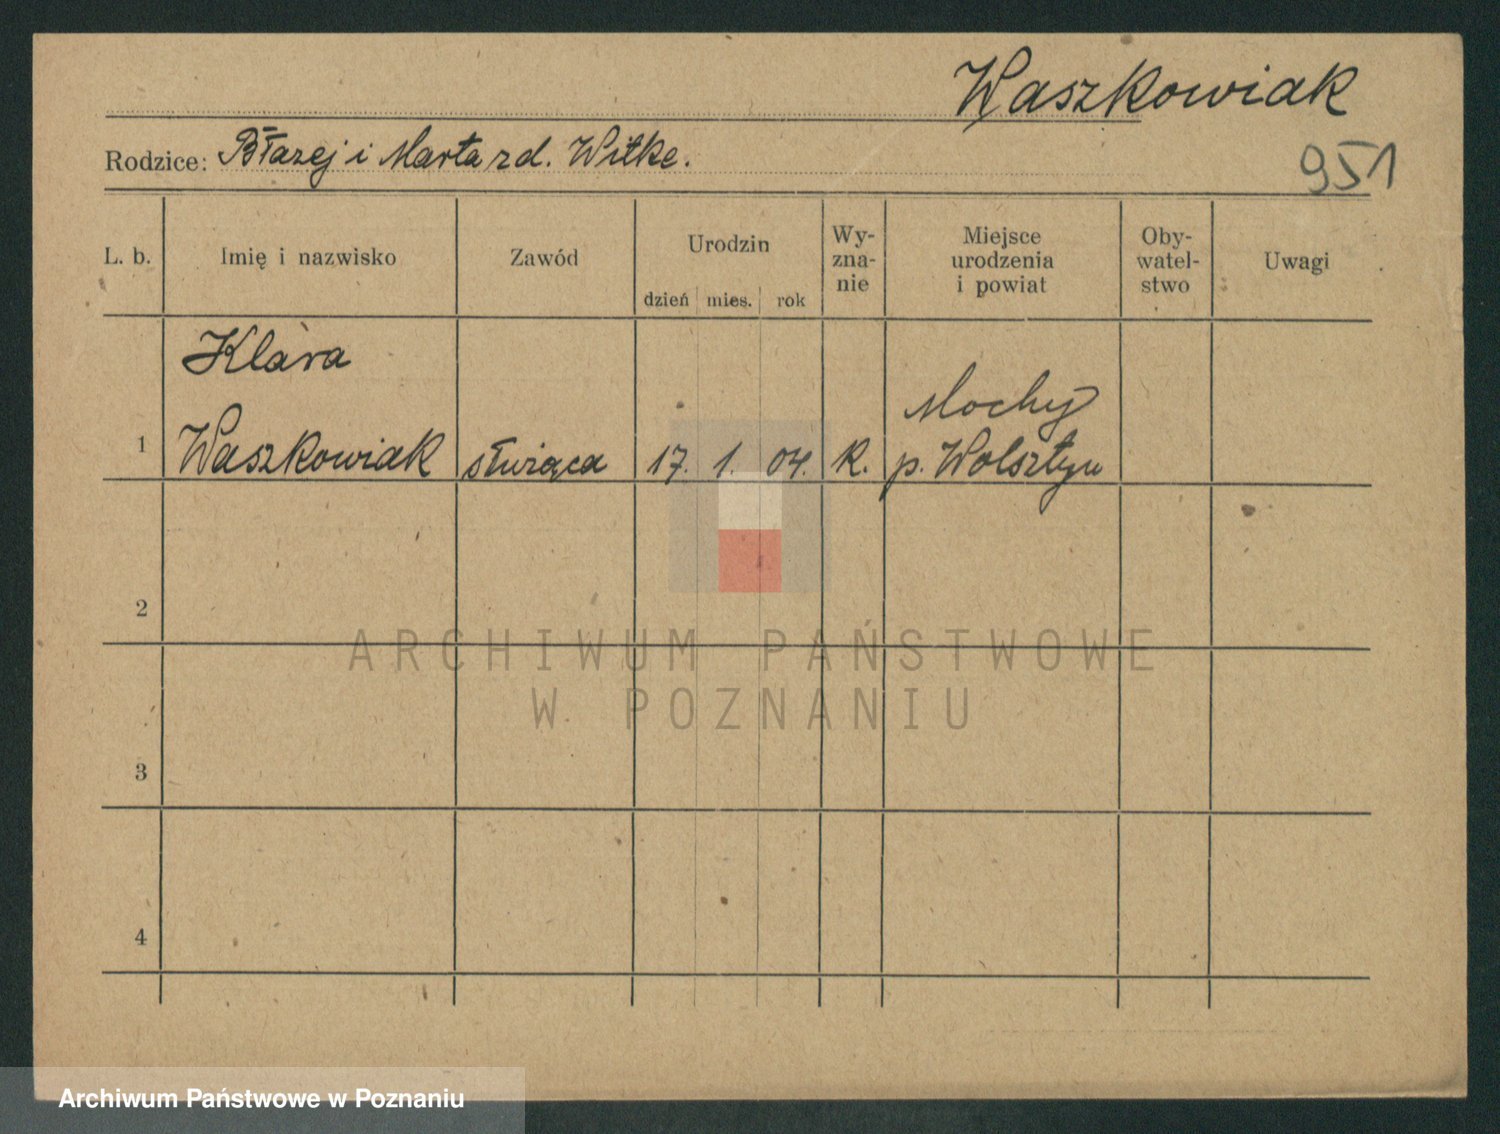 Waszkowiak
Rodzice: Błazej i Marta zd. Witke.
951
L. b. Imię i nazwisko Zawód Urodzin Wy- Miejsce Oby- Uwagi
zna- urodzenia watel-
dzień mies. rok nie i powiat stwo
Klara
Mochy
1 Waszkowiak służąca 17. 1. 04. k. p. Wolsztyn
2
ARCHIWUM PAŃSTWOWE
W POZNANIU
3
4
Archiwum Państwowe w Poznaniu